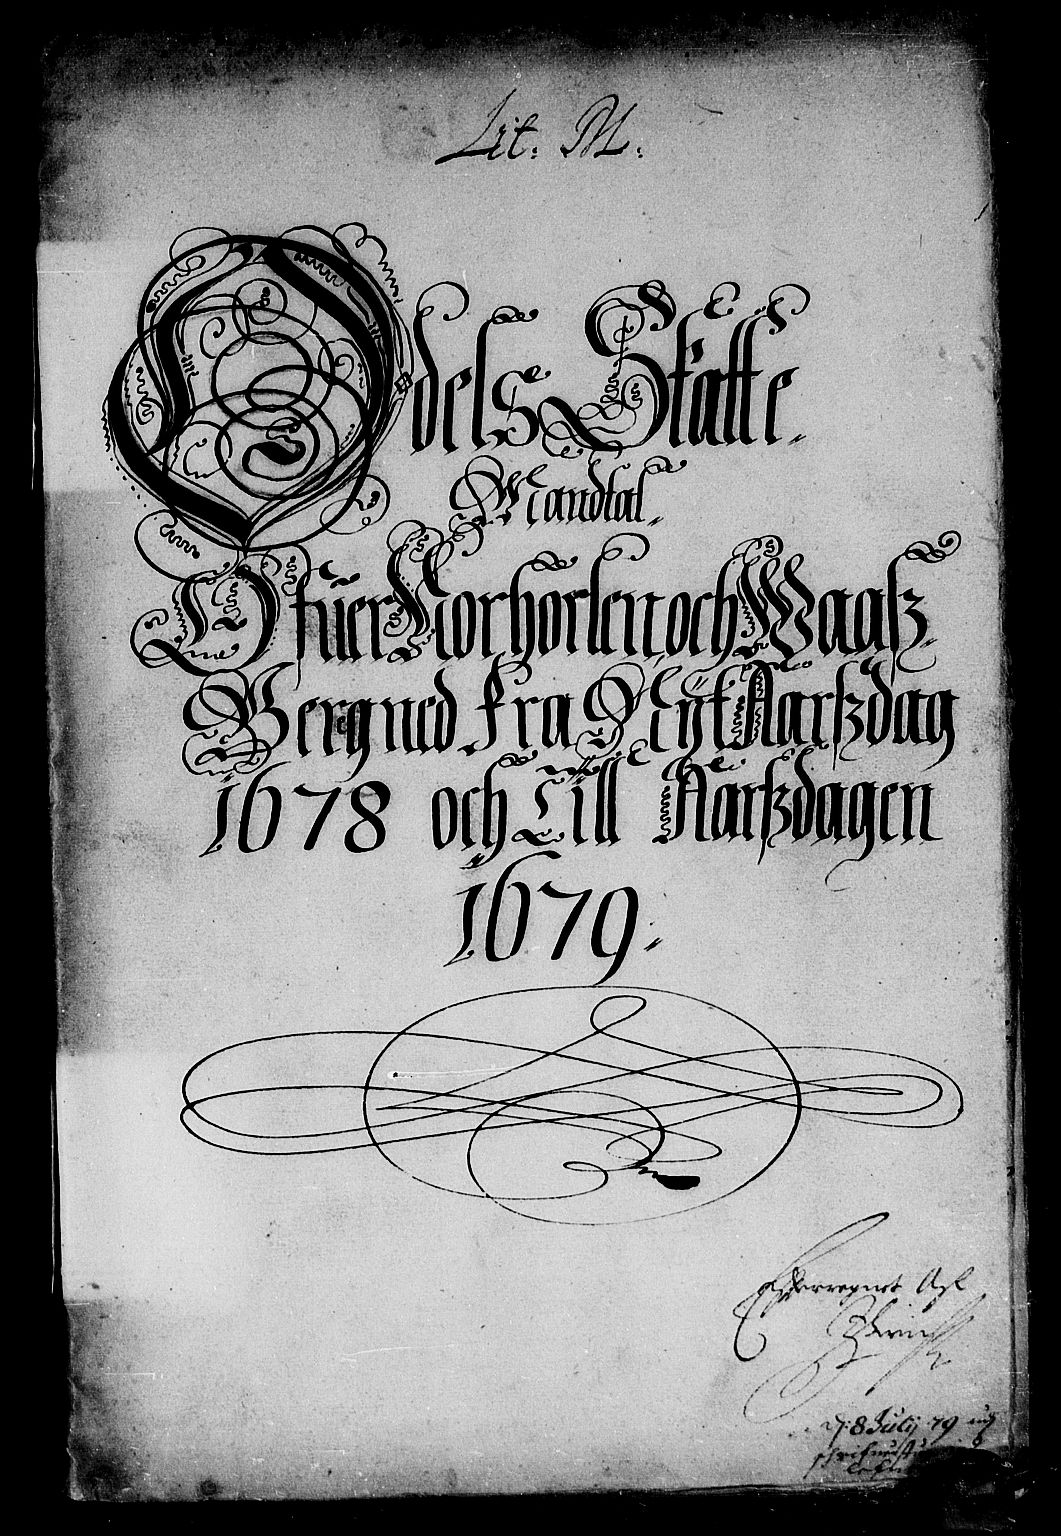 Lit: M:
Odels Skatte
Mandtal
Ofuer Norhorlen och Waasz
Bergned Fra Nÿt Aarszdag
1678 och Till Aarszdagen
1679
d: 8 Julij 79